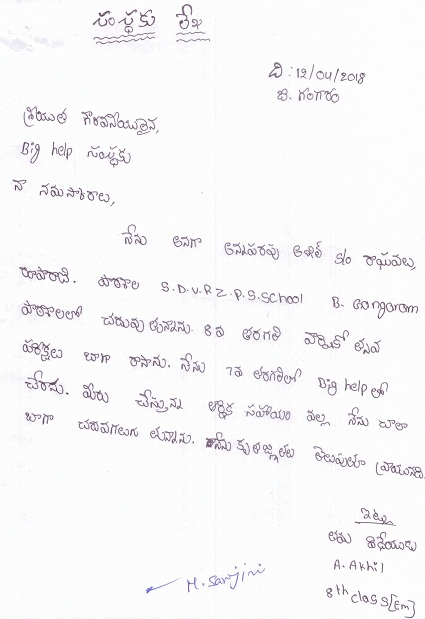 సంస్థకు లేఖ
ది : 12/04/2018
బి. గంగారం
శ్రీయుత గౌరవనీయులైన,
Big help సంస్థకు
నా నమస్కారాలు,
నేను అనగా అన్నపరపు అఖిల్ s/o రాఘవులు,
పాఠశాల S.D.V.R Z.P.S.School B. Gangaram
పాఠశాలలో చదువుతున్నాను. 8వ తరగతి వార్షికోత్సవ
పరీక్షలు బాగా రాసాను. నేను 7వ తరగతిలో Big help లో
చేరాను. మీరు చేస్తున్న ఆర్థిక సహాయం వల్ల నేను చాలా
బాగా చదవగలుగుతున్నాను. కృతజ్ఞతలు తెలుపుతూ వ్రాయునది.
ఇట్లు
తమ విధేయుడు
A. Akhil
8th class [Em]
M. Sarojini